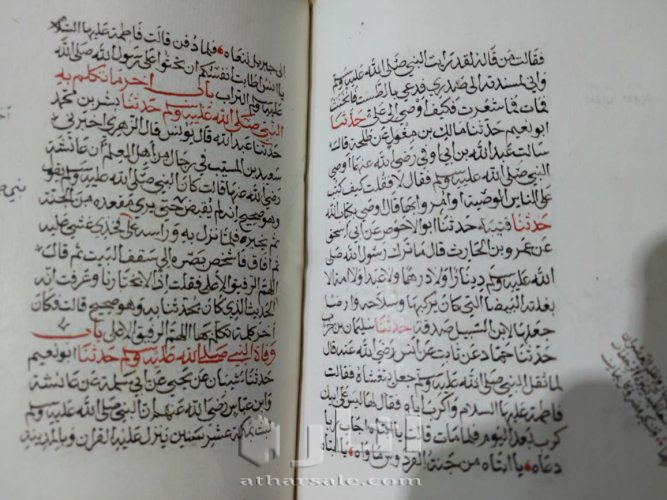 فقالت من قاله لقد رايت النبي صلى الله عليه وسلم
واني لمسندته الى صدري فدعى بالطست فانخنث
فمات فما شعرت فكيف اوصى الى علي حدثنا
ابو نعيم حدثنا مالك بن مغول عن طلحة قال
سالت عبد الله بن ابي اوفى رضي الله عنهما اوصى
النبي صلى الله عليه وسلم فقال لا فقلت كيف كتب
على الناس الوصية او امروا بها قال اوصى بكتاب الله
حدثنا قتيبة حدثنا ابو الاحوص عن ابي اسحق
عن عمرو بن الحارث قال ما ترك رسول الله صلى
الله عليه وسلم دينارا ولا درهما ولا عبدا ولا امة الا
بغلته البيضا التي كان يركبها وسلاحه وارضا
جعلها لابن السبيل صدقة حدثنا سليمان بن حرب
حدثنا حماد عن ثابت عن انس رضي الله عنه قال
لما ثقل النبي صلى الله عليه وسلم جعل يتغشاه فقالت
فاطمة عليها السلام واكرب اباه فقال لها ليس على ابيك
كرب بعد اليوم فلما مات قالت يا ابتاه اجاب ربا
دعاه يا ابتاه من جنة الفردوس ماواه يا ابتاه
الى جبريل ننعاه فلما دفن قالت فاطمة عليها السلام
يا انس اطابت انفسكم ان تحثوا على رسول الله صلى الله
عليه وسلم التراب باب اخر ما تكلم به
النبي صلى الله عليه وسلم حدثنا بشر بن محمد
حدثنا عبد الله قال يونس قال الزهري اخبرني
سعيد بن المسيب في رجال من اهل العلم ان عائشة
رضي الله عنها قالت كان النبي صلى الله عليه وسلم يقول
وهو صحيح انه لم يقبض نبي حتى يرى مقعده من الجنة
ثم يخير فلما نزل به وراسه على فخذي غشي عليه
ثم افاق فاشخص بصره الى سقف البيت ثم قال
اللهم الرفيق الاعلى فقلت اذا لا يختارنا وعرفت انه
الحديث الذي كان يحدثنا به وهو صحيح قالت فكان
اخر كلمة تكلم بها اللهم الرفيق الاعلى باب
وفاة النبي صلى الله عليه وسلم حدثنا ابو نعيم
حدثنا شيبان عن يحيى عن ابي سلمة عن عائشة
وابن عباس رضي الله عنهم ان النبي صلى الله عليه وسلم
لبث بمكة عشر سنين ينزل عليه القران وبالمدينة
atharsale.com